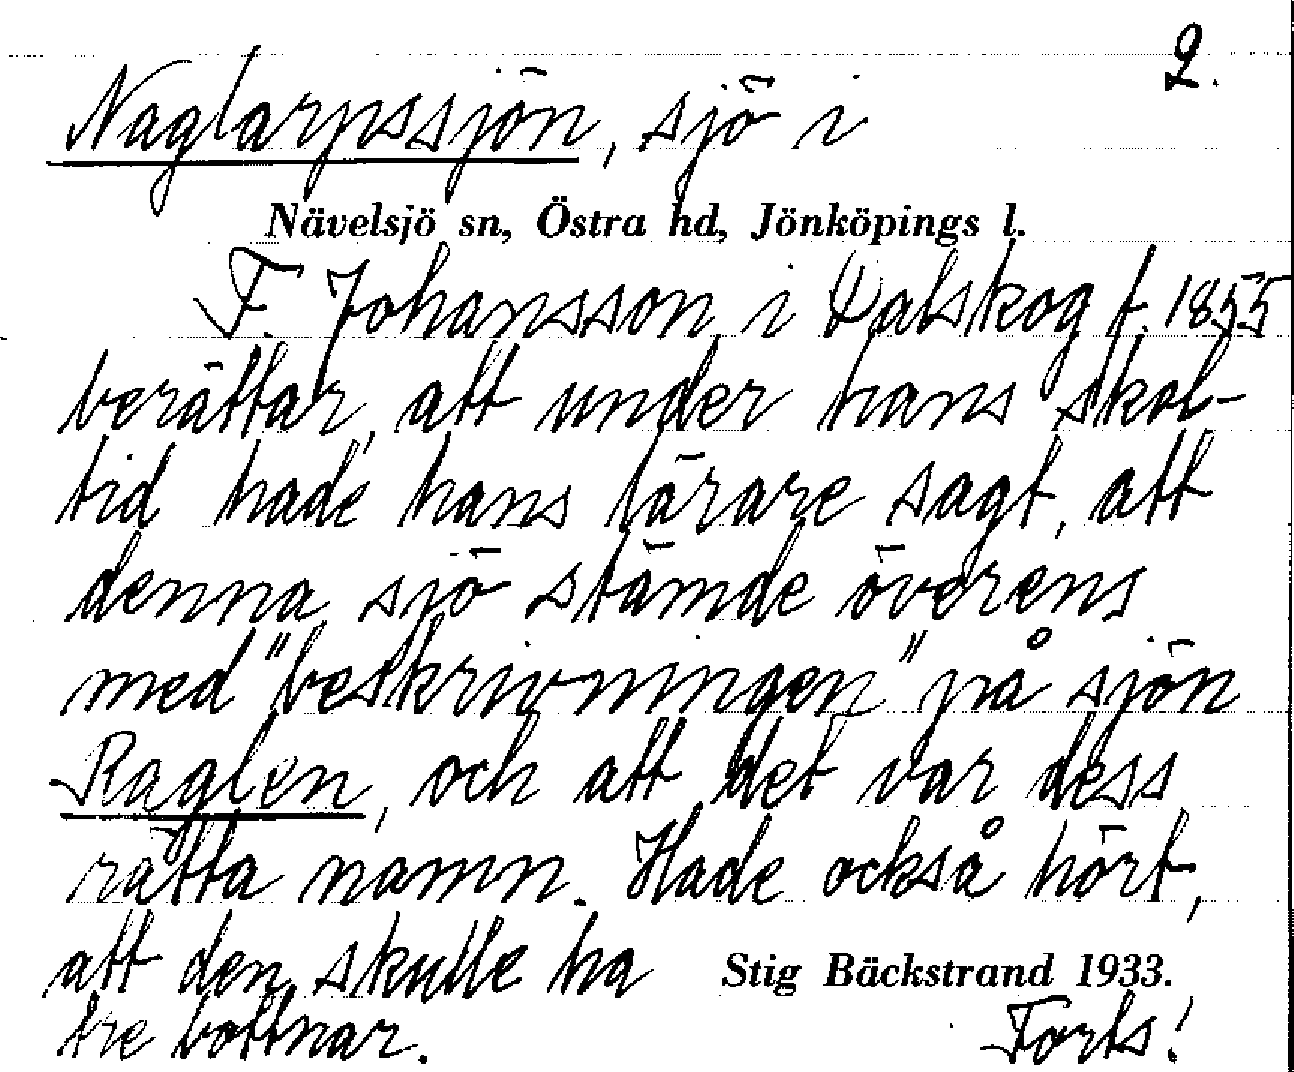 2.
Naglarpssjön, sjö i
Nävelsjö sn, Östra hd, Jönköpings l.
F. Johansson i Dalskog f. 1855
berättar, att under hans skol-
tid hade hans lärare sagt, att
denna sjö stämde överens
med "beskrivningen" på sjön
Raglen, och att det var dess
rätta namn. Hade också hört,
att den skulle ha
Stig Bäckstrand 1933.
tre bottnar.
Forts!